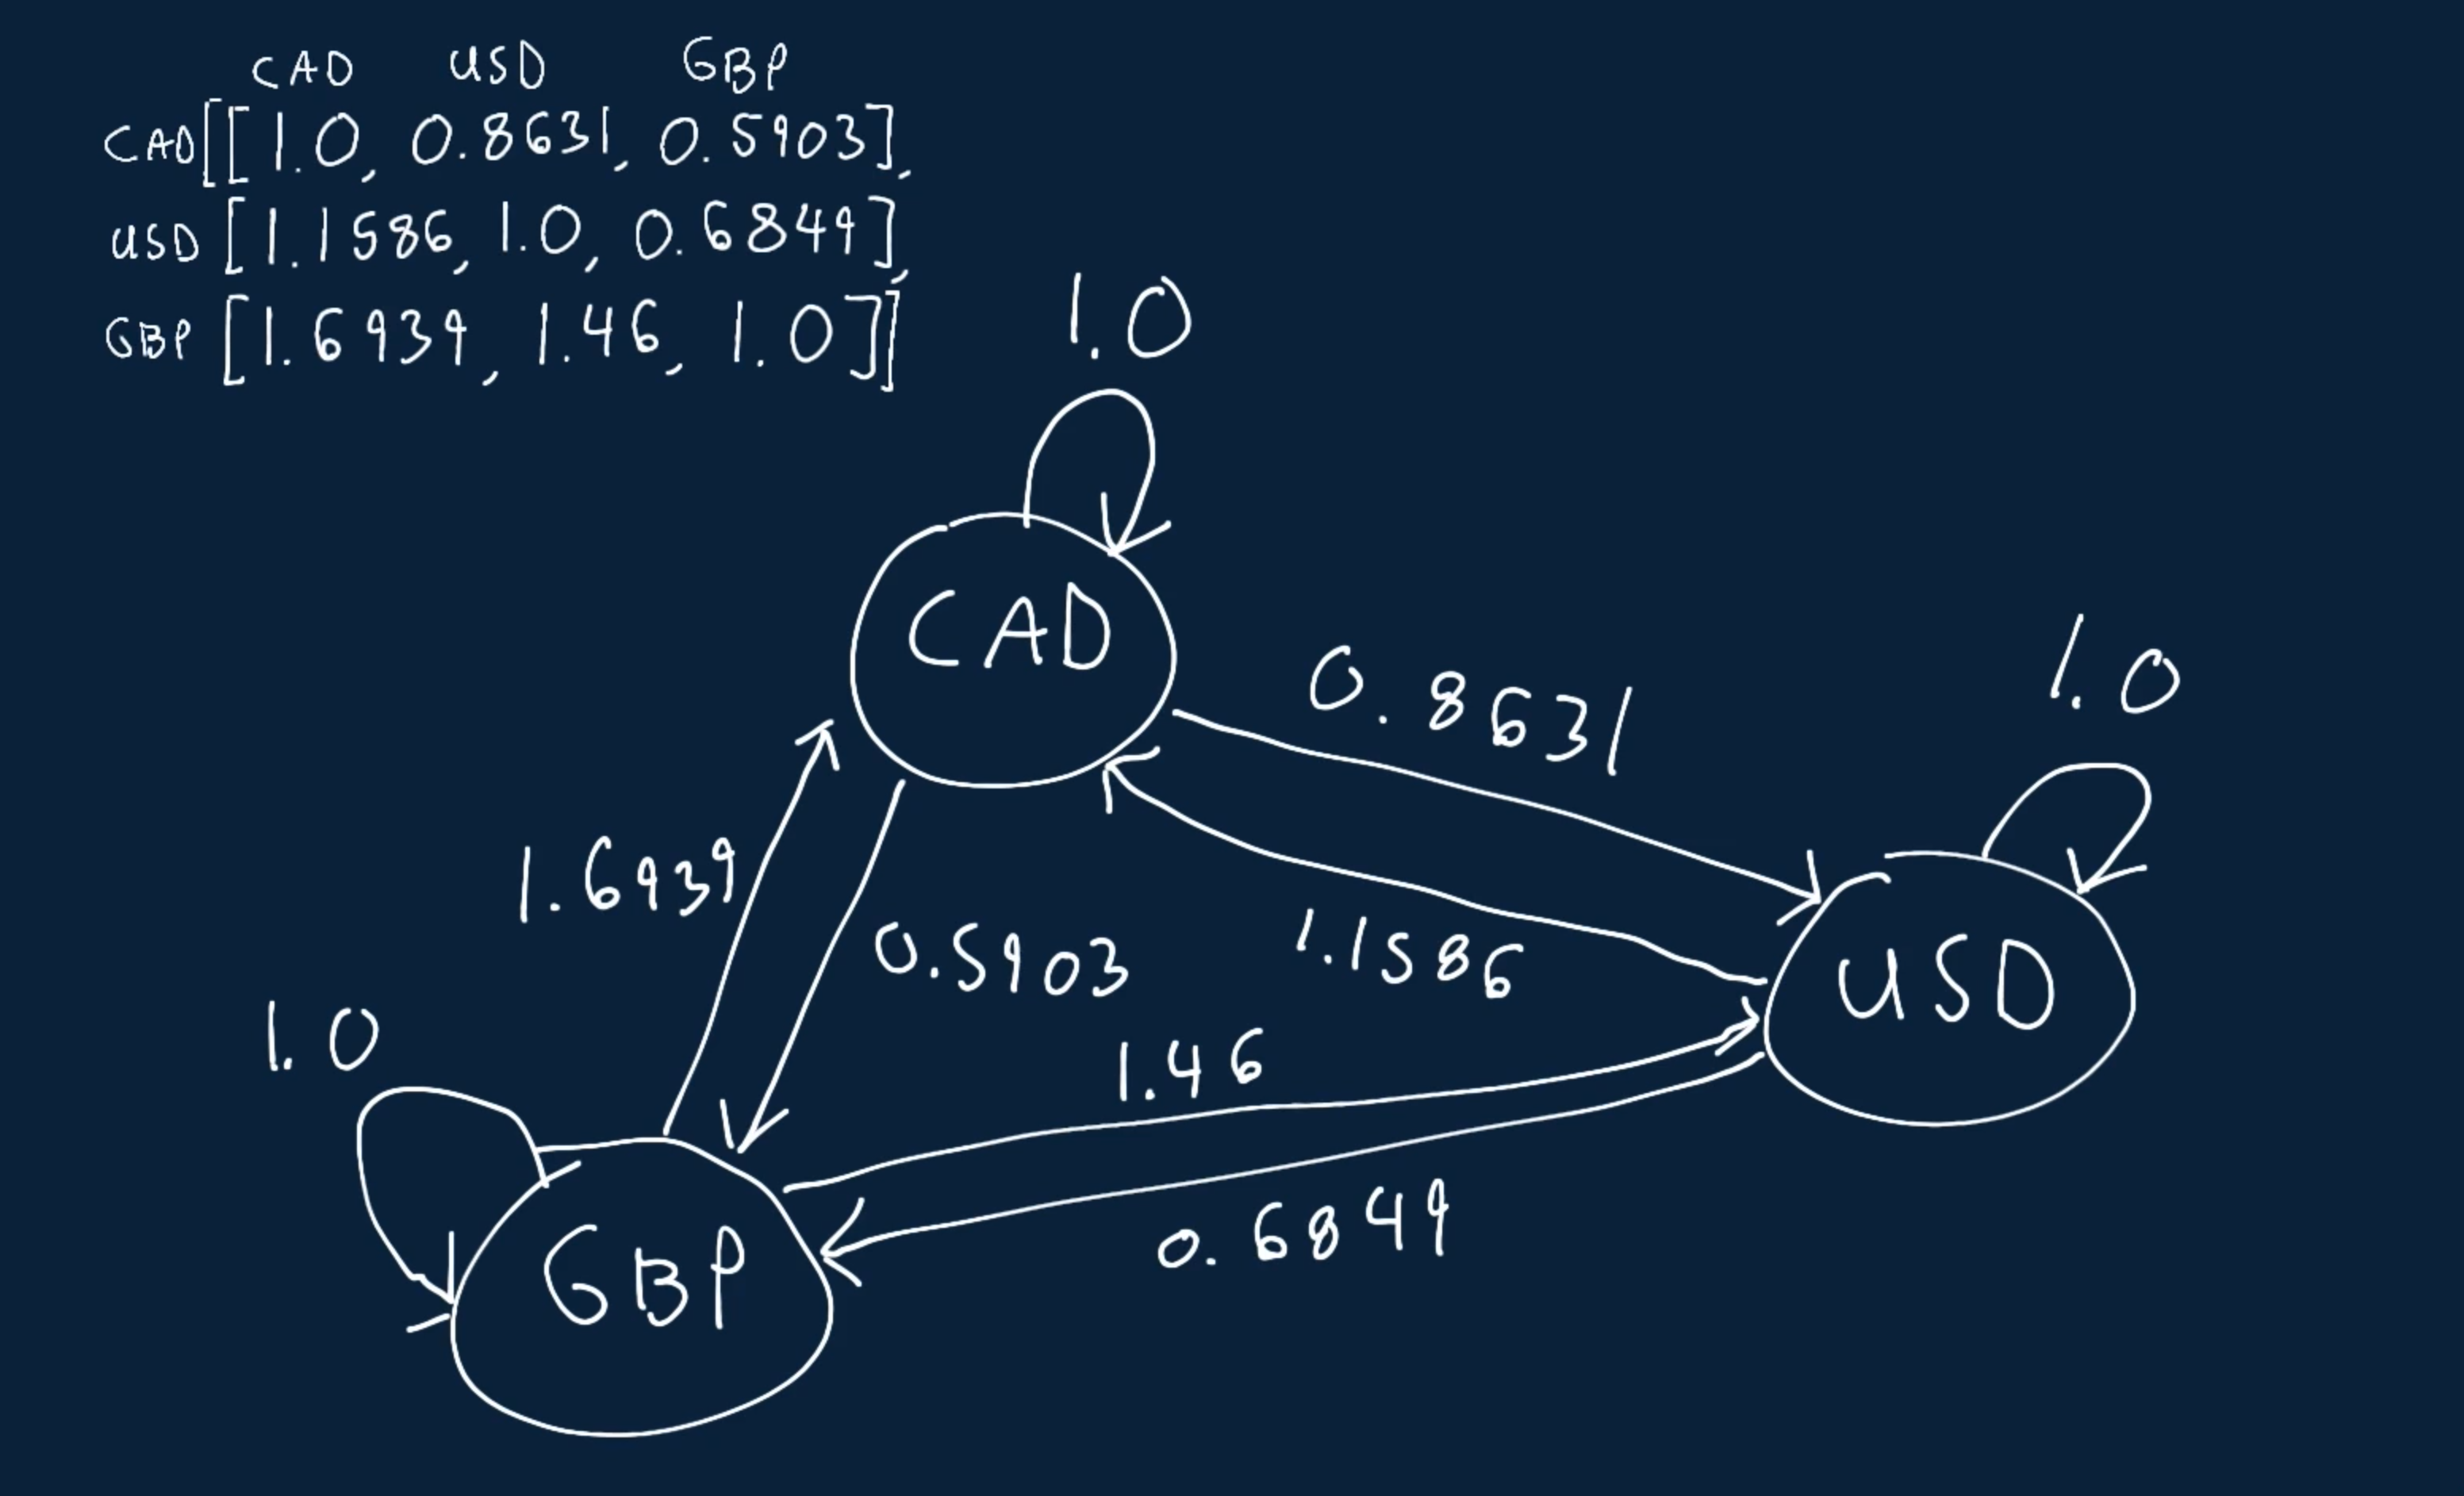 CAD USD GBP
CAD[[1.0, 0.8631, 0.5903],
USD [1.1586, 1.0, 0.6849],
GBP [1.6939, 1.46, 1.0]]
1.0
CAD
0.8631
1.0
1.6939
0.5903
1.1586
USD
1.0
1.46
0.6849
GBP